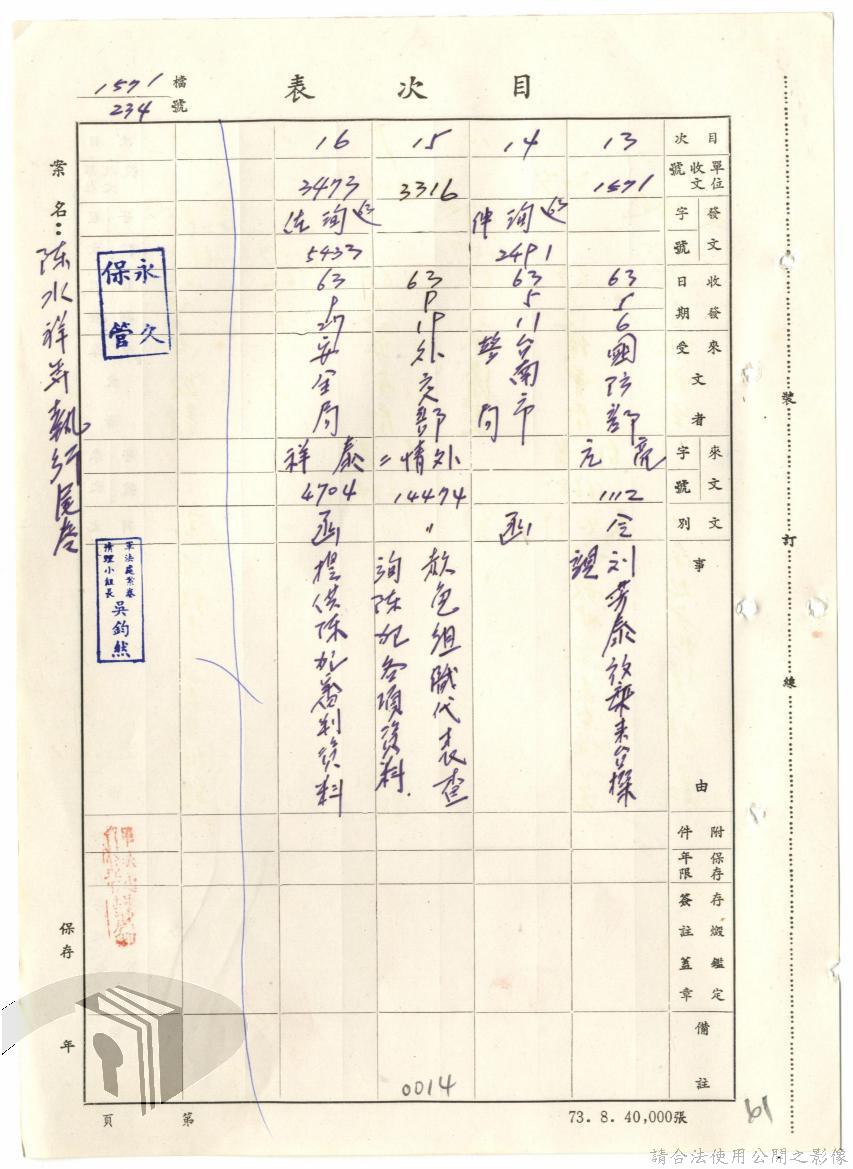 目次表
檔號
1571
234
目次
單位收文號
發文字號
收發日期
來受文者
來文字號
文別
事由
附件
保存年限
存燬鑑定簽註蓋章
備註
13
1571
63
5
6
國防部
亮元
1112
令
14
2491
63
5
11
台南市警局
函
15
3316
63
9
19
外交部
外情二
14474
〃
赦色組職代表查詢陳犯各項資料.
16
3473
5433
63
9
27
安全局
泰祥
4704
函
提供陳犯審判資料
案名:陈水祥等執行
永久保管
軍法處案卷清理小組長
吳鈞然
保存 年
第 頁
0014
73. 8. 40,000張
61
裝訂線
請合法使用公開之影像